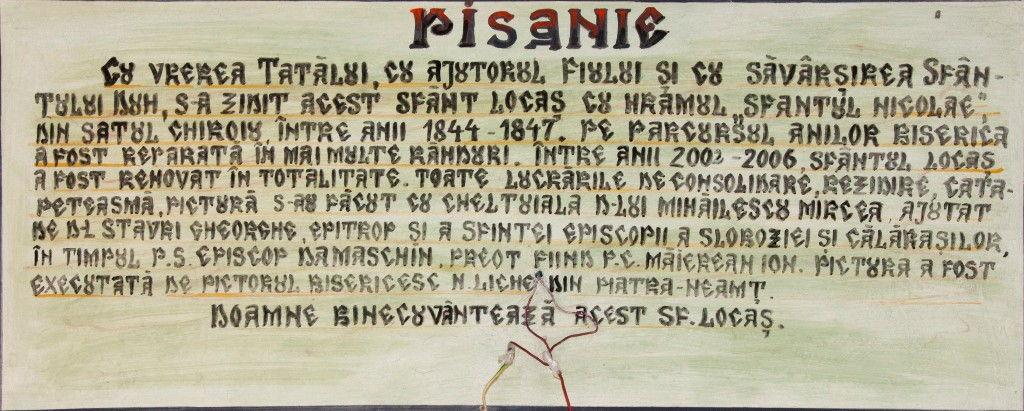 PISANIE
CU VREREA TATĂLUI, CU AJUTORUL FIULUI ȘI CU SĂVÂRȘIREA SFÂN-
TULUI DUH, S-A ZIDIT ACEST SFÂNT LOCAȘ CU HRAMUL „SFÂNTUL NICOLAE”
DIN SATUL CHIROIU, ÎNTRE ANII 1844-1847. PE PARCURSUL ANILOR BISERICA
A FOST REPARATĂ ÎN MAI MULTE RÂNDURI. ÎNTRE ANII 2003-2006, SFÂNTUL LOCAȘ
A FOST RENOVAT ÎN TOTALITATE. TOATE LUCRĂRILE DE CONSOLIDARE, REZIDIRE, CATA-
PETEASMĂ, PICTURĂ S-AU FĂCUT CU CHELTUIALA D-LUI MIHĂILESCU MIRCEA, AJUTAT
DE D-L STAVRI GHEORGHE, EPITROP ȘI A SFINTEI EPISCOPII A SLOBOZIEI ȘI CĂLĂRAȘILOR,
ÎN TIMPUL P.S. EPISCOP DAMASCHIN, PREOT FIIND P.C. MĂIEREAN ION. PICTURA A FOST
EXECUTATĂ DE PICTORUL BISERICESC N. LICHE DIN PIATRA-NEAMȚ.
DOAMNE BINECUVÂNTEAZĂ ACEST SF. LOCAȘ.